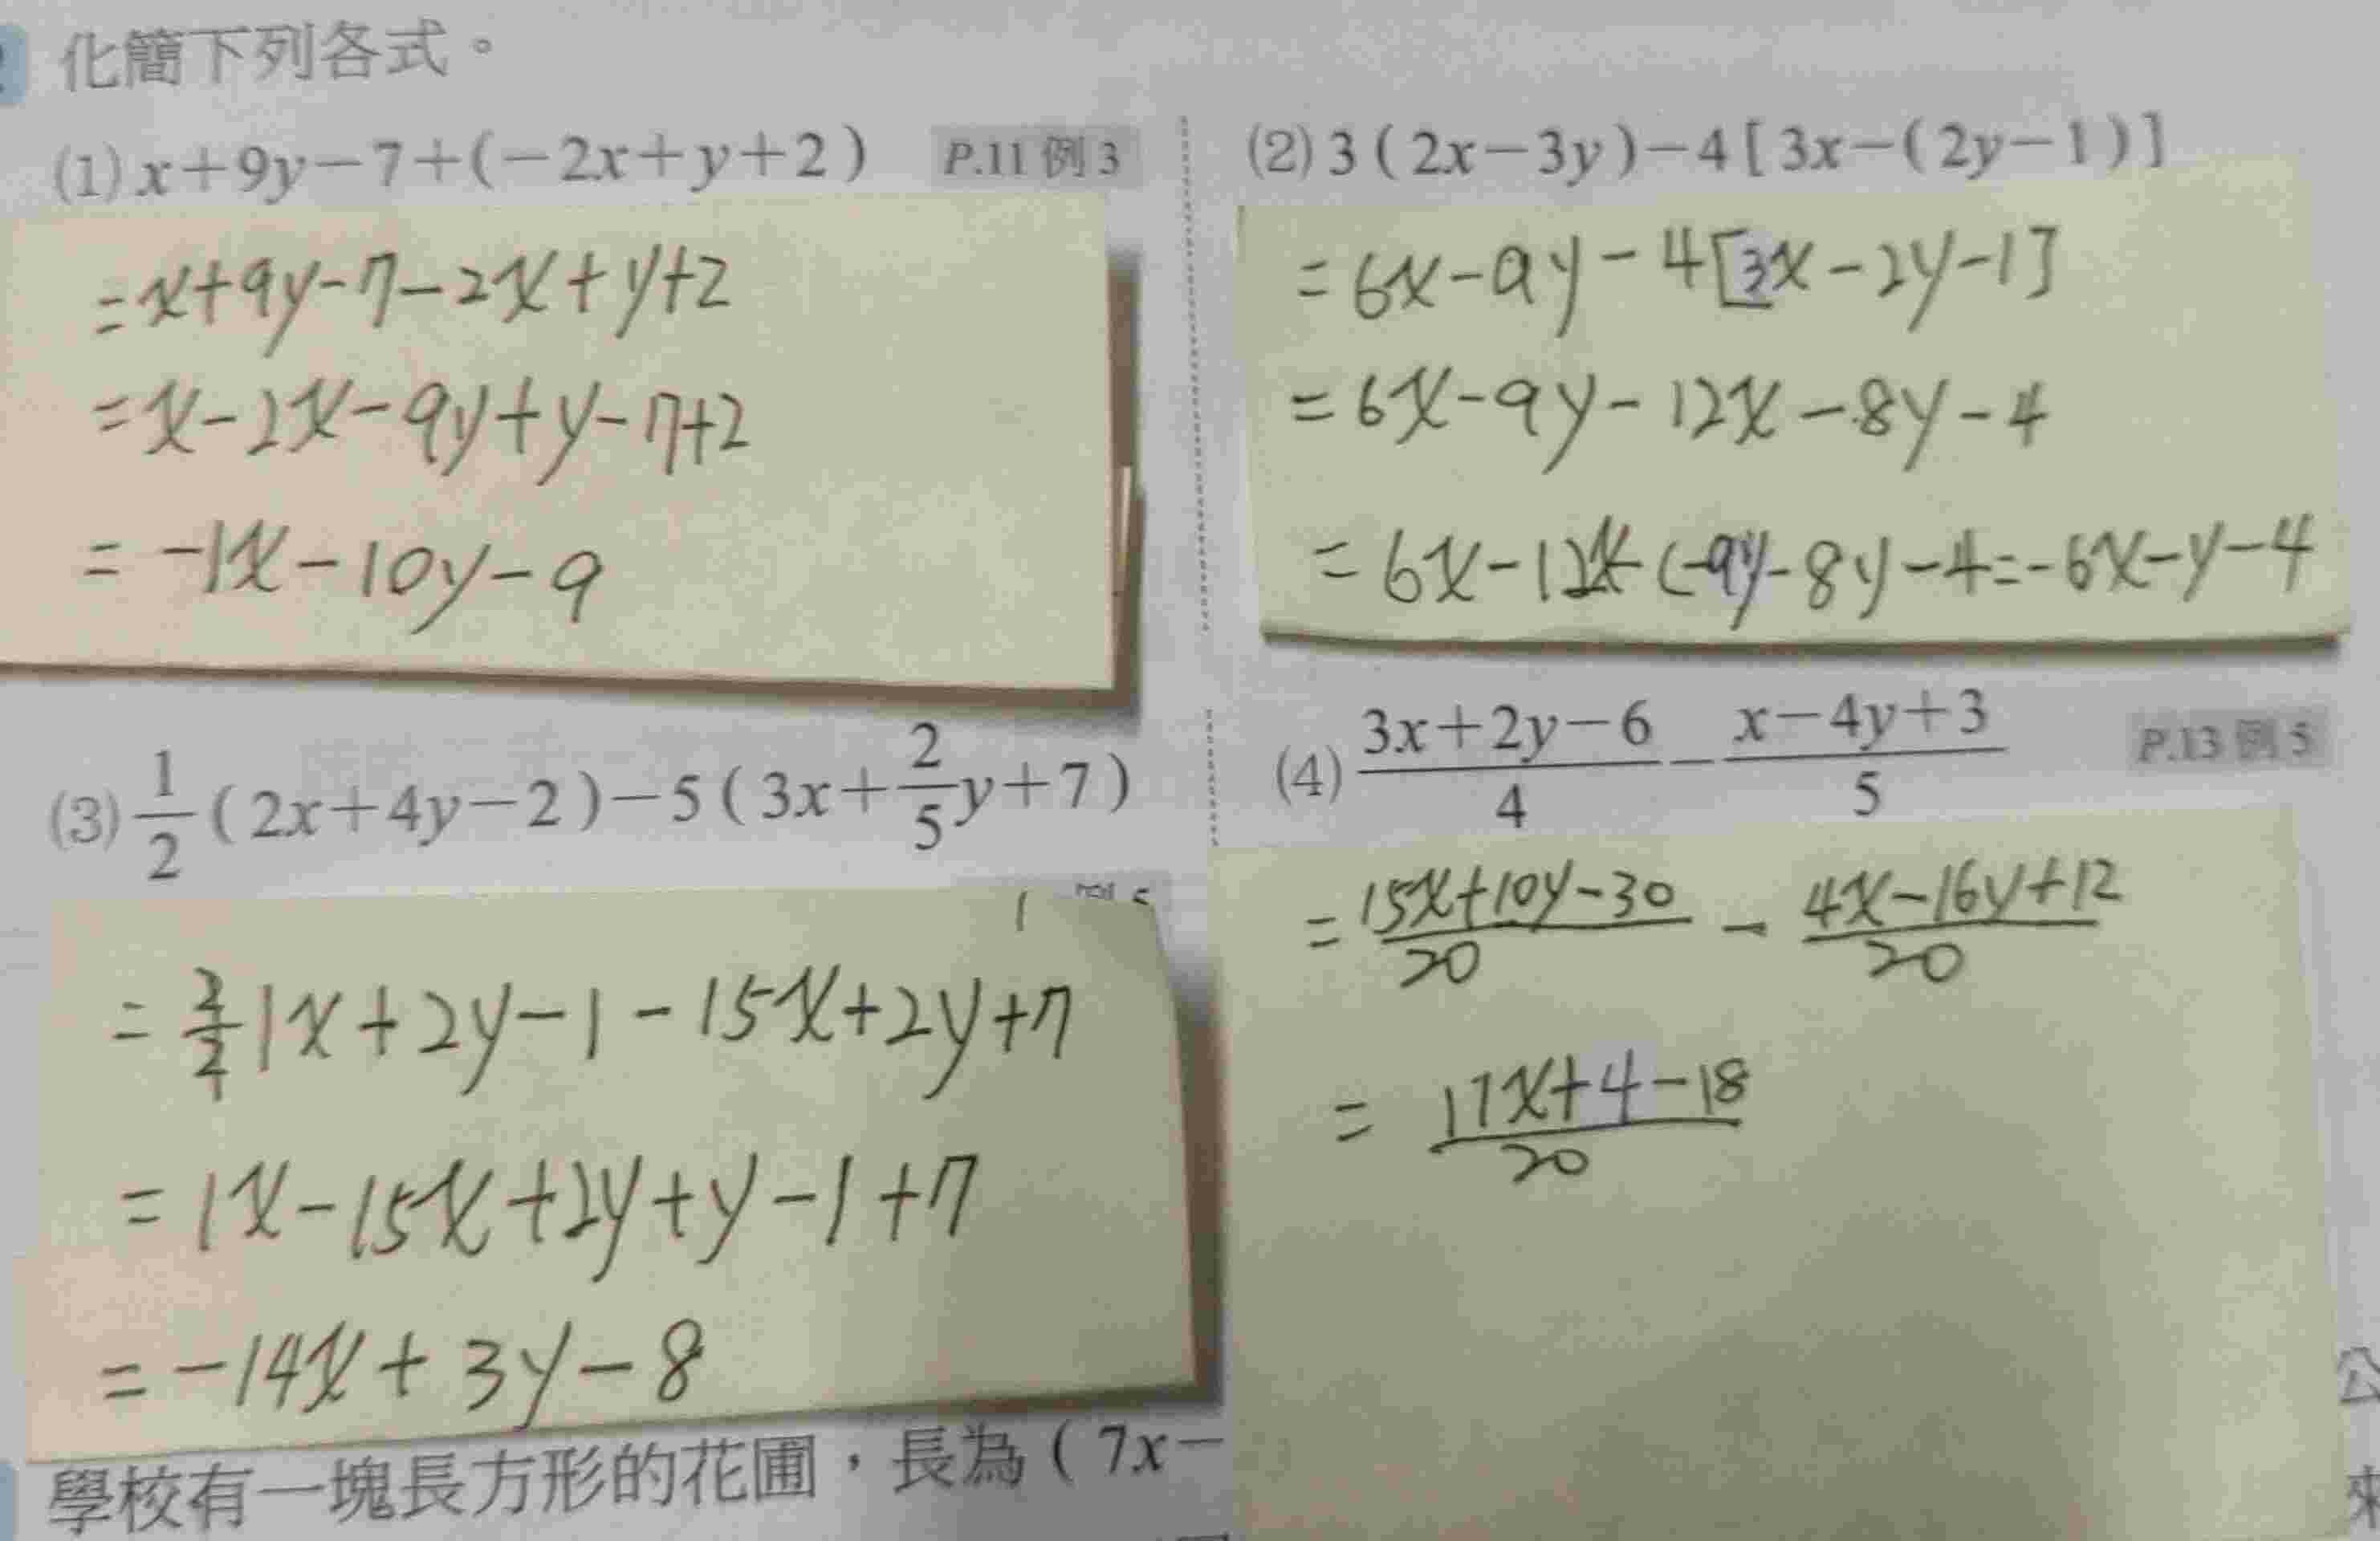 化簡下列各式。
(1) x+9y-7+(-2x+y+2) P.11 例 3
=x+9y-7-2x+y+2
=x-2x-9y+y-7+2
=-1x-10y-9
(2) 3(2x-3y)-4[3x-(2y-1)]
=6x-9y-4[3x-2y-1]
=6x-9y-12x-8y-4
=6x-12x-(-9y-8y-4=-6x-y-4
(3) \frac{1}{2}(2x+4y-2)-5(3x+\frac{2}{5}y+7)
例 5
=\frac{2}{2}1x+2y-1-15x+2y+7
=1x-15x+2y+y-1+7
=-14x+3y-8
(4) \frac{3x+2y-6}{4}-\frac{x-4y+3}{5} P.13 例 5
=\frac{15x+10y-30}{20}-\frac{4x-16y+12}{20}
=\frac{17x+4-18}{20}
學校有一塊長方形的花圃，長為(7x-
公